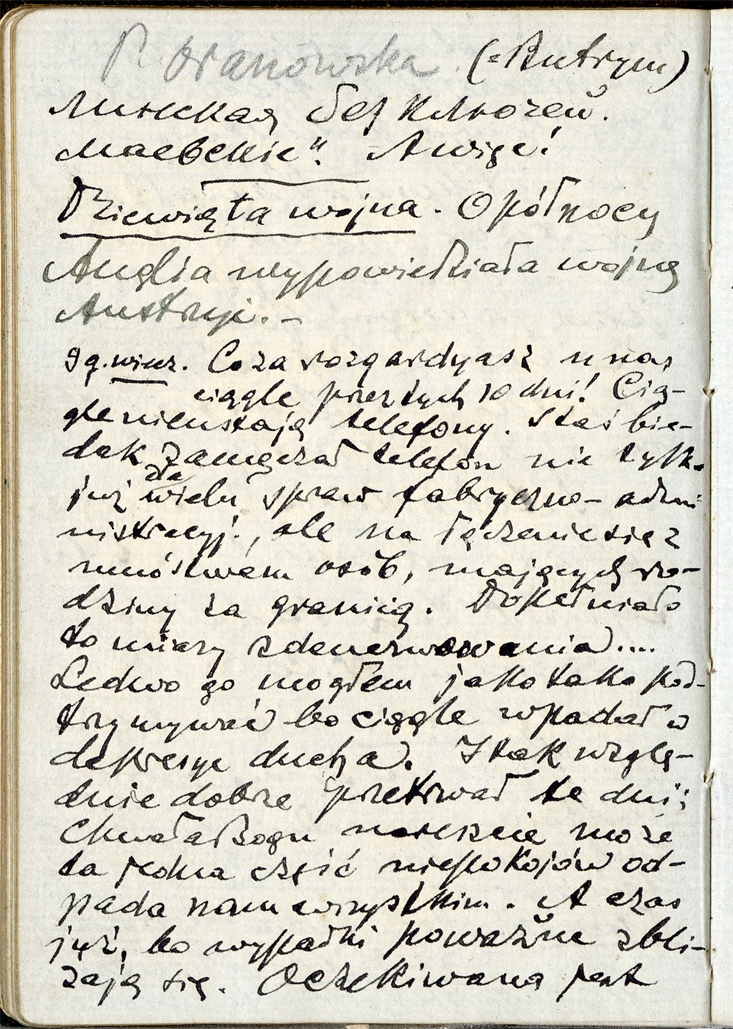 P. Oranowska (=Butrym)
Минская без ключей.
Маевские". A więc!
Dziewiąta wojna. O północy
Anglia wypowiedziała wojnę
Austryi.-
9 g. wiecz. Co za rozgardyasz u nas
ciągle przez tych 10 dni! Cią-
gle nieustają telefony. Staś bie-
dak zamęczał telefon nie tylk.
już dla wielu spraw fabryczno-admi
nistracyj., ale na łączenie się z
mnóstwem osób, mających ro-
dziny za granicą. Dopełniało
to miary zdenerwowania....
Ledwo go mogłem jako tako pod-
trzymywać bo ciągle wpadał w
depresye ducha. I tak wzglę-
dnie dobrze przetrwał te dni;
Chwała Bogu nareszcie może
ta jedna część niepokojów od-
pada nam wszystkim. A czas
już, bo wypadki poważne zbli-
żają się. Oczekiwana jest